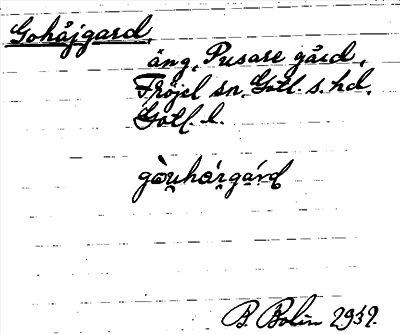 Gohåjgard,
äng, Pusare gård,
Fröjel sn, Gotl. s. hd,
Gotl. l.
B. Bolin 1932.